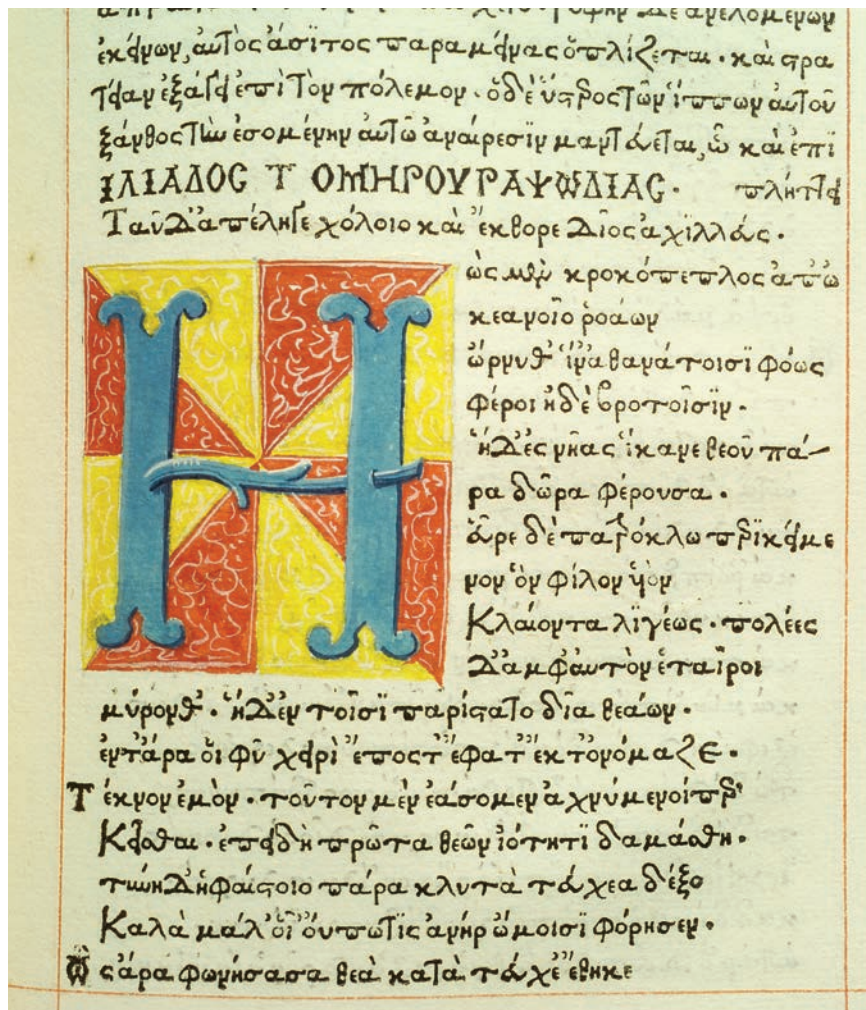 δὲ ἀνελομένων
ἐκείνων, αὐτὸς ἄσιτος παραμείνας ὁπλίζεται. καὶ στρα
τείαν ἐξάγει ἐπὶ τὸν πόλεμον. ὁ δὲ ἕτερος τῶν ἵππων αὐτοῦ
ξάνθος τὴν ἐσομένην αὐτῶ ἀναίρεσιν μαντεύεται, ὧ καὶ ἐπι
ἸΛΙΆΔΟϹ Τ ὉΜΉΡΟΥ ΡΑΨΩΔΊΑϹ· πλήττει
Ταῦ δ' ἀπέληγε χόλοιο καὶ ἔκθορε δῖος ἀχιλλεύς.
Η
ὼς μὲν κροκόπεπλος ἀπ' ὠ
κεανοῖο ῥοάων
ὤρνυθ' ἵν' ἀθανάτοισι φόως
φέροι ἠδὲ βροτοῖσιν.
ἡ δ' ἐς νῆας ἵκανε θεοῦ πά-
ρα δῶρα φέρουσα.
εὗρε δὲ πατρόκλω περικείμε
νον ὃν φίλον υἱὸν
Κλαίοντα λιγέως. πολέες
δ' ἀμφ' αὐτὸν ἑταῖροι
μύρονθ'. ἡ δ' ἐν τοῖσι παρίστατο δῖα θεάων.
ἔν τ' ἄρα οἱ φῦ χειρὶ ἔπος τ' ἔφατ' ἔκ τ' ὀνόμαζε.
Τέκνον ἐμὸν. τοῦτον μὲν ἐάσομεν ἀχνύμενοί περ
Κεῖσθαι. ἐπειδὴ πρῶτα θεῶν ἰότητι δαμάσθη.
τύνη δ' ἡφαίστοιο πάρα κλυτὰ τεύχεα δέξο
Καλὰ μάλ' οἷ' οὔπω τὶς ἀνὴρ ὤμοισι φόρησεν.
Ὣς ἄρα φωνήσασα θεὰ κατὰ τεύχε' ἔθηκε